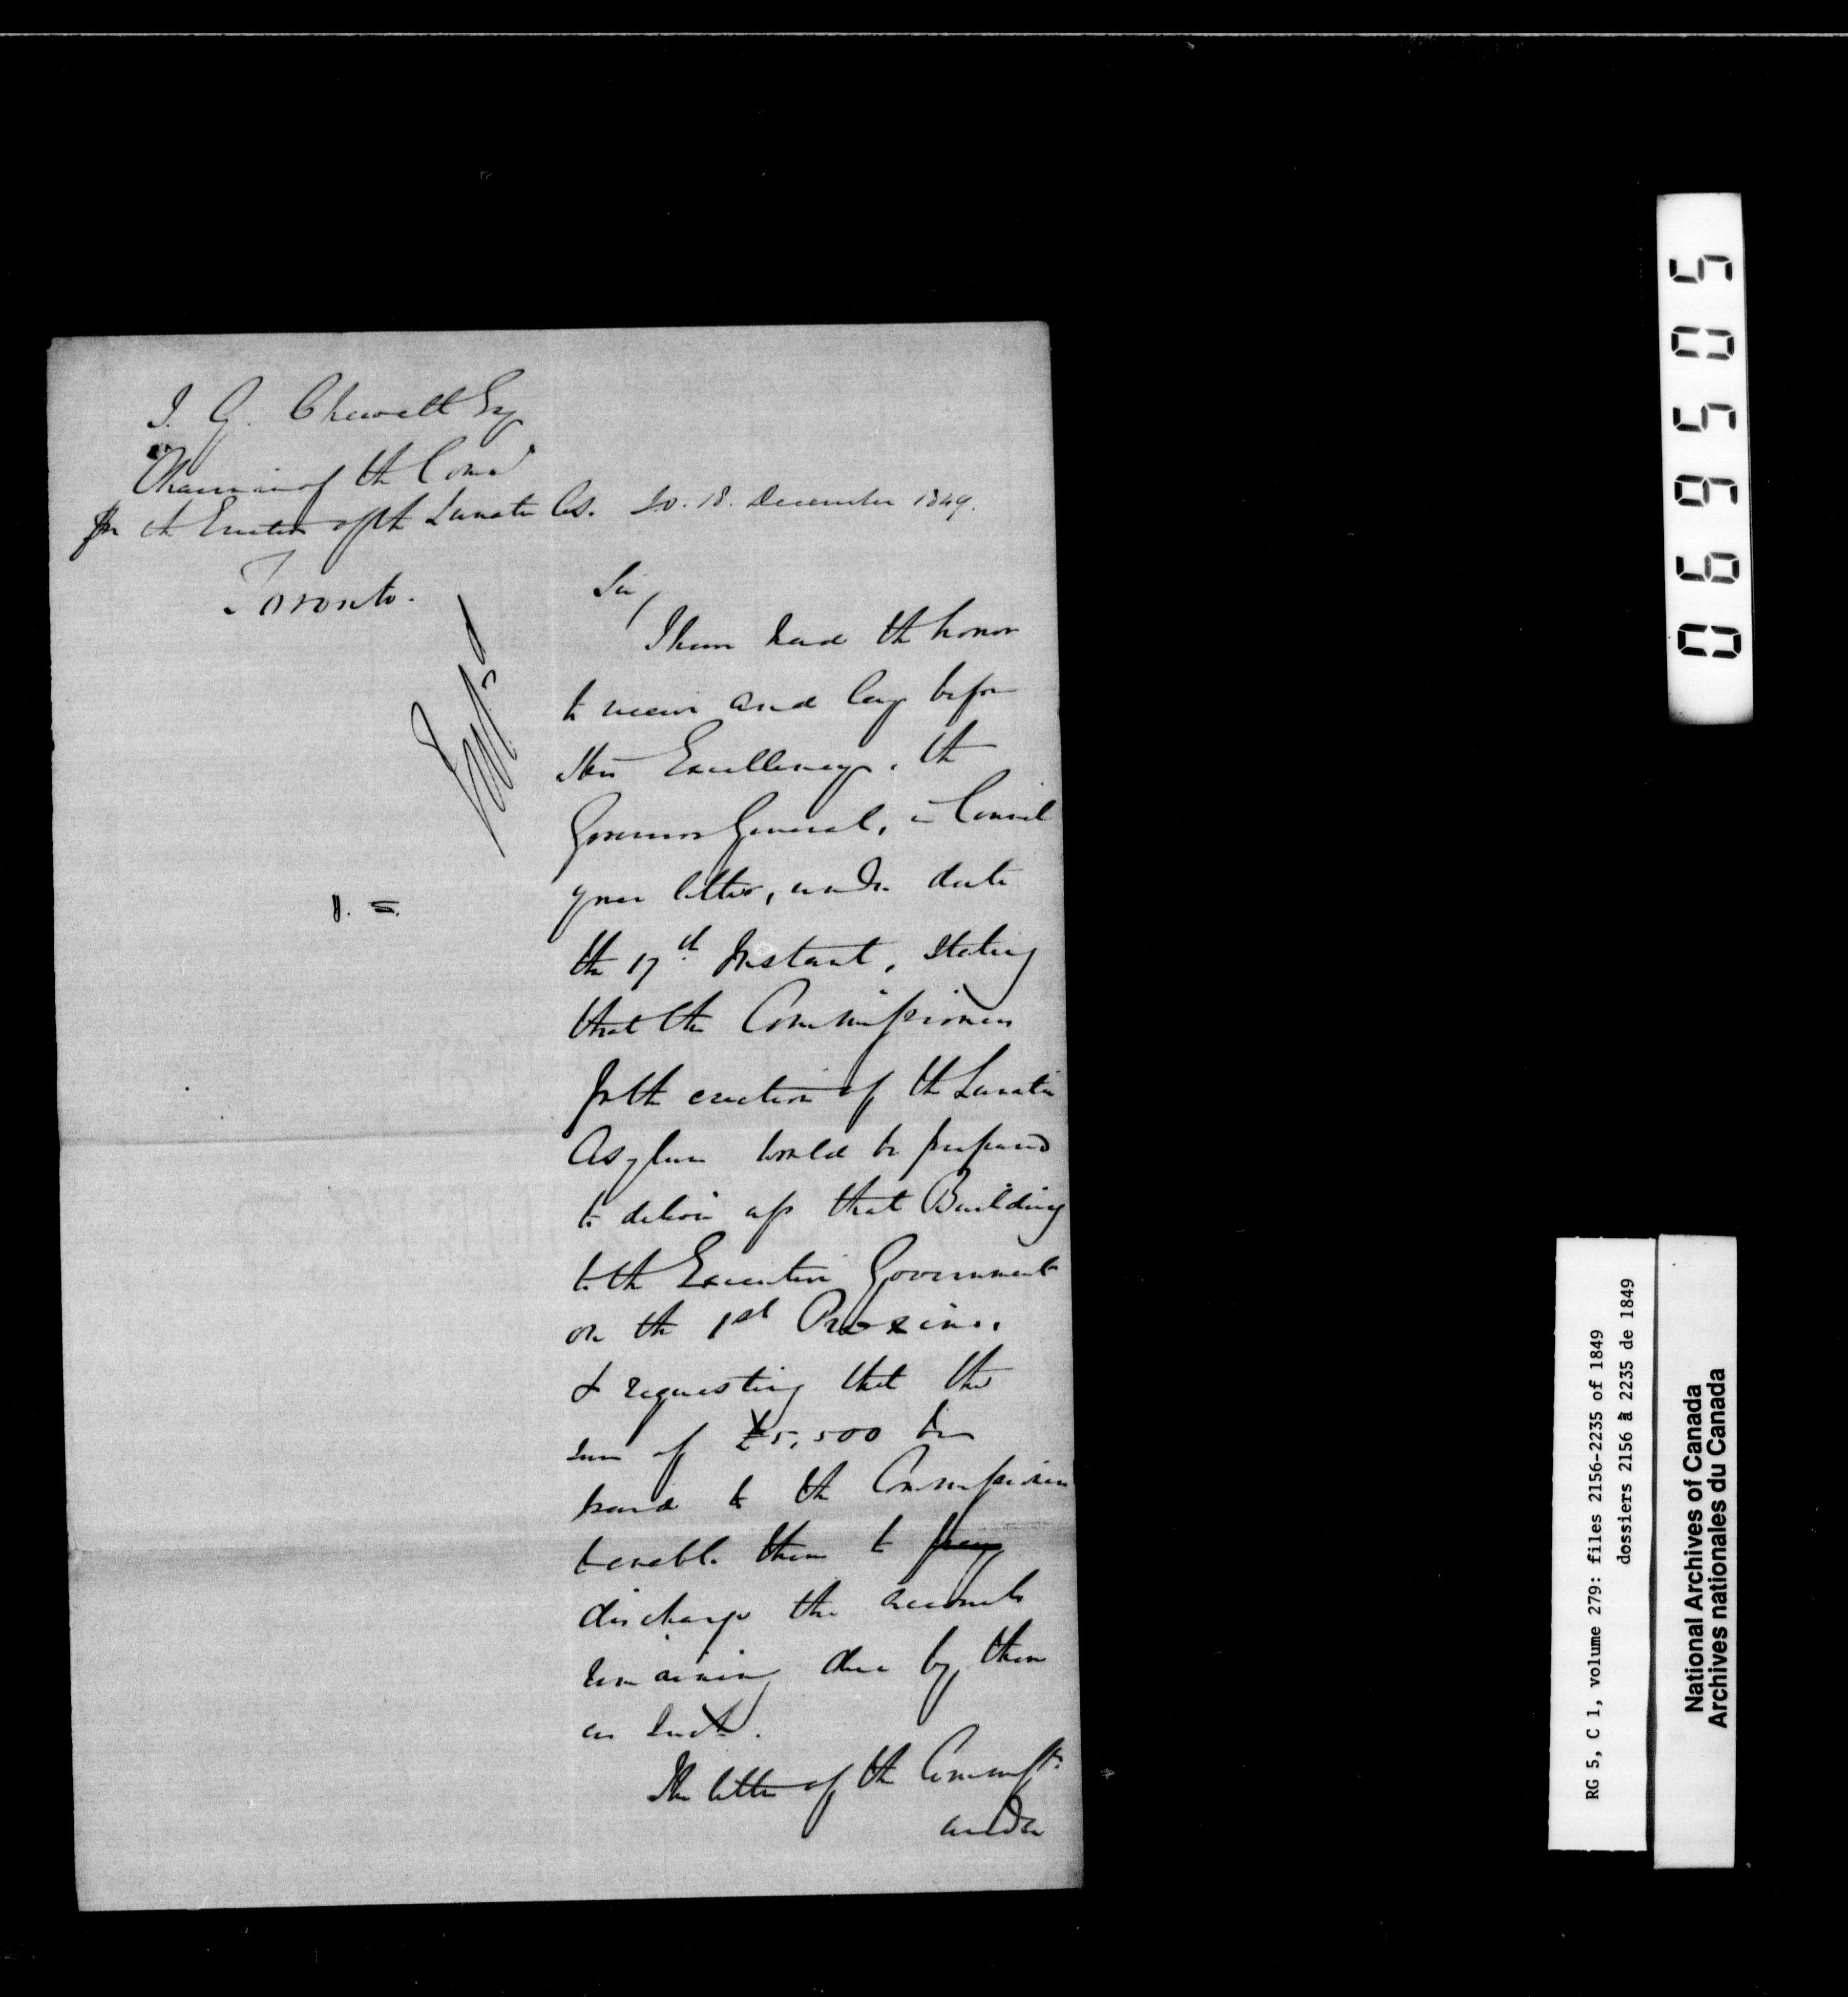 J. G. Chewett Esq
Chairman of the Comrs
for the Erection of the Lunatic As. S.O. 18. December 1849.
Toronto.
Sir,
I have had the honor
to receive and lay before
His Excellency, the
Governor General, in Council
your letter, under date
the 17th Instant, stating
that the Commissioners
for the erection of the Lunatic
Asylum would be prepared
to deliver up that Building
to the Executive Government
on the 1st Proximo.
& requesting that the
sum of £5,500 be
paid to the Commissioners
to enable them to pay
discharge the accounts
remaining due by them
as such.
The letter of the Commrs
under
069505
RG 5, C 1, volume 279: files 2156-2235 of 1849
dossiers 2156 à 2235 de 1849
National Archives of Canada
Archives nationales du Canada